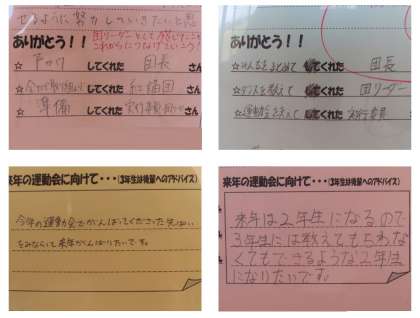 せるように努力していきたいと思
ありがとう！！
団リーダーとして
これからにつなげていこう！
☆ してくれた 団長 さん
☆ してくれた 紅組団
☆ 準備 してくれた 実行委員
ありがとう！！
☆みんなをまとめて してくれた 団長
☆ダンスを教えて くれた 団リーダー
☆運動会を支えて くれた 実行委員
来年の運動会に向けて・・・(3年生は後輩へのアドバイス)
今年の運動会でがんばってくださった先ぱい
をみならって来年がんばりたいです。
来年の運動会に向けて・・・(3年生は後輩へのアドバイス)
来年は2年生になるので
3年生には教えてもらわな
くてもできるような2年生
になりたいです。